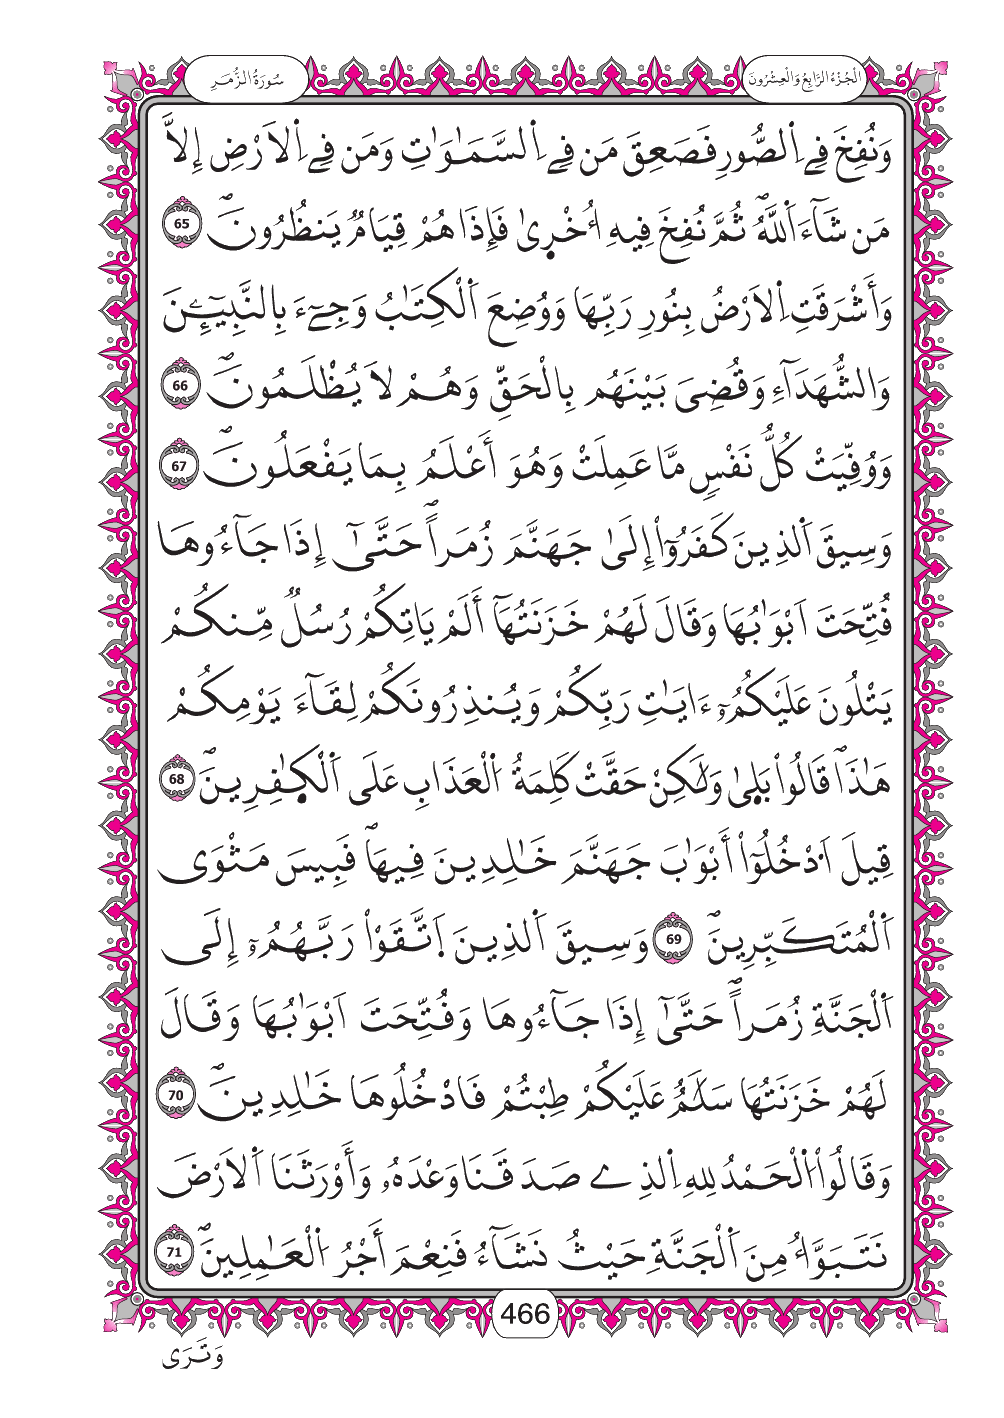 الْجُزْءُ الرَّابِعُ وَالْعِشْرُونَ
سُورَةُ الزُّمَرِ
وَنُفِخَ فِے اِ۬لصُّورِ فَصَعِقَ مَن فِے اِ۬لسَّمَٰوَٰتِ وَمَن فِے اِ۬لَارْضِ إِلَّا
مَن شَآءَ اَ۬للَّهُۖ ثُمَّ نُفِخَ فِيهِ أُخْر۪يٰ فَإِذَا هُمْ قِيَامٞ يَنظُرُونَۖ 65
وَأَشْرَقَتِ اِ۬لَارْضُ بِنُورِ رَبِّهَا وَوُضِعَ اَ۬لْكِتَٰبُ وَجِےٓءَ بِالنَّبِيٓـِٕۧنَ
وَالشُّهَدَآءِ وَقُضِيَ بَيْنَهُم بِالْحَقِّ وَهُمْ لَا يُظْلَمُونَۖ 66
وَوُفِّيَتْ كُلُّ نَفْسٖ مَّا عَمِلَتْ وَهُوَ أَعْلَمُ بِمَا يَفْعَلُونَۖ 67
وَسِيقَ اَ۬لذِينَ كَفَرُوٓاْ إِلَىٰ جَهَنَّمَ زُمَراًۖ حَتَّىٰٓ إِذَا جَآءُوهَا
فُتِّحَتَ اَبْوَٰبُهَا وَقَالَ لَهُمْ خَزَنَتُهَآ أَلَمْ يَاتِكُمْ رُسُلٞ مِّنكُمْ
يَتْلُونَ عَلَيْكُمُۥٓ ءَايَٰتِ رَبِّكُمْ وَيُنذِرُونَكُمْ لِقَآءَ يَوْمِكُمْ
هَٰذَاۖ قَالُواْ بَل۪يٰ وَلَٰكِنْ حَقَّتْ كَلِمَةُ اُ۬لْعَذَابِ عَلَى اَ۬لْكٰ۪فِرِينَۖ 68
قِيلَ اَ۟دْخُلُوٓاْ أَبْوَٰبَ جَهَنَّمَ خَٰلِدِينَ فِيهَاۖ فَبِيسَ مَثْوَى
اَ۬لْمُتَكَبِّرِينَۖ 69 وَسِيقَ اَ۬لذِينَ اَ۪تَّقَوْاْ رَبَّهُمُۥٓ إِلَى
اَ۬لْجَنَّةِ زُمَراًۖ حَتَّىٰٓ إِذَا جَآءُوهَا وَفُتِّحَتَ اَبْوَٰبُهَا وَقَالَ
لَهُمْ خَزَنَتُهَا سَلَٰمٌ عَلَيْكُمْ طِبْتُمْ فَادْخُلُوهَا خَٰلِدِينَۖ 70
وَقَالُواْ اُ۬لْحَمْدُ لِلهِ اِ۬لذِے صَدَقَنَا وَعْدَهُۥ وَأَوْرَثَنَا اَ۬لَارْضَ
نَتَبَوَّأُ مِنَ اَ۬لْجَنَّةِ حَيْثُ نَشَآءُ فَنِعْمَ أَجْرُ اُ۬لْعَٰمِلِينَۖ 71
466
وَتَرَى